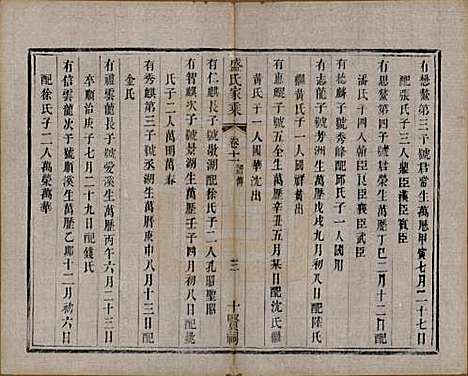 有懋鰲第三子號君常生萬歷甲寅七月二十七日
配張氏子三人繼臣臣漢賓臣
有思鰲第四子號君榮生萬歷丁巳二月十四日配
潘氏子四人韓臣民臣襄臣武臣
有德麟子號秀峰配邱氏子一人國用
有志龍子號芳洲生萬歷戊戌九月初八日配陸氏
繼黃氏子一人國祥黃出
有惠鯤子號五全生萬歷辛丑五月某日配沈氏繼
黃氏子一人國華沈出
盛氏家乘
卷十一
譜傳
三
十賢祠
有仁麒第一子號墩湖配徐氏子二人孔昭聖昭
有智麒次子號景湖生萬歷壬子四月初八日配姚
氏子二人萬明萬春
有秀麒第三子號丞湖生萬歷庚申八月十三日配
金氏
有禮雲龍長子號愛溪生萬歷丙午六月二十三日
卒順治庚子七月二十九日配錢氏
有信雲龍次子號順溪生萬歷乙卯十二月初六日
配徐氏子二人萬榮萬華